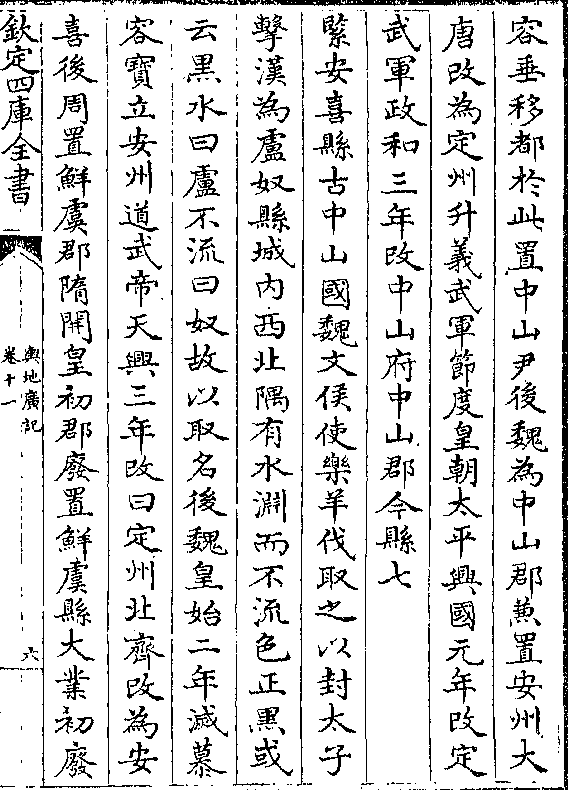 容垂移都於此置中山尹後魏為中山郡兼置安州大
唐改為定州升義武軍節度皇朝太平興國元年改定
武軍政和三年改中山府中山郡今縣七
緊安喜縣古中山國魏文侯使樂羊伐取之以封太子
擊漢為盧奴縣城内西北隅有水淵而不流色正黑或
云黑水曰盧不流曰奴故以取名後魏皇始二年滅慕
容寶立安州道武帝天興三年改曰定州北齊改為安
喜後周置鮮虞郡隋開皇初郡廢置鮮虞縣大業初廢
欽定四庫全書
輿地廣記
卷十一
六